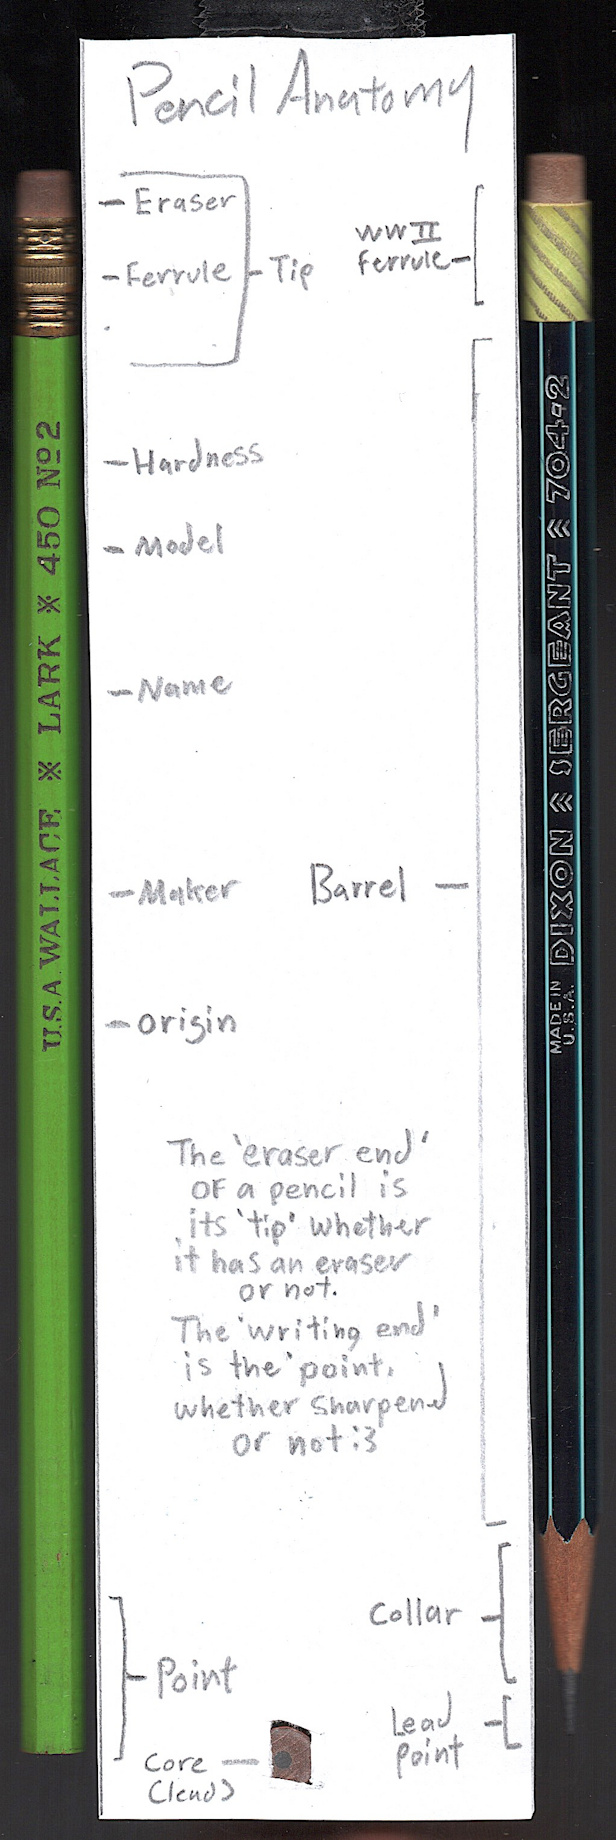 Pencil Anatomy
Eraser
Ferrule
Tip
WWII
Ferrule
Hardness
Model
Name
Maker
Barrel
Origin
The 'eraser end'
of a pencil is
its 'tip' whether
it has an eraser
or not.
The 'writing end'
is the 'point,
whether sharpened
or not :3
Collar
Point
Lead
Point
Core
(lead)
U.S.A. WALLACE ※ LARK ※ 450 Nº2
MADE IN
U.S.A.
DIXON SERGEANT 704-2